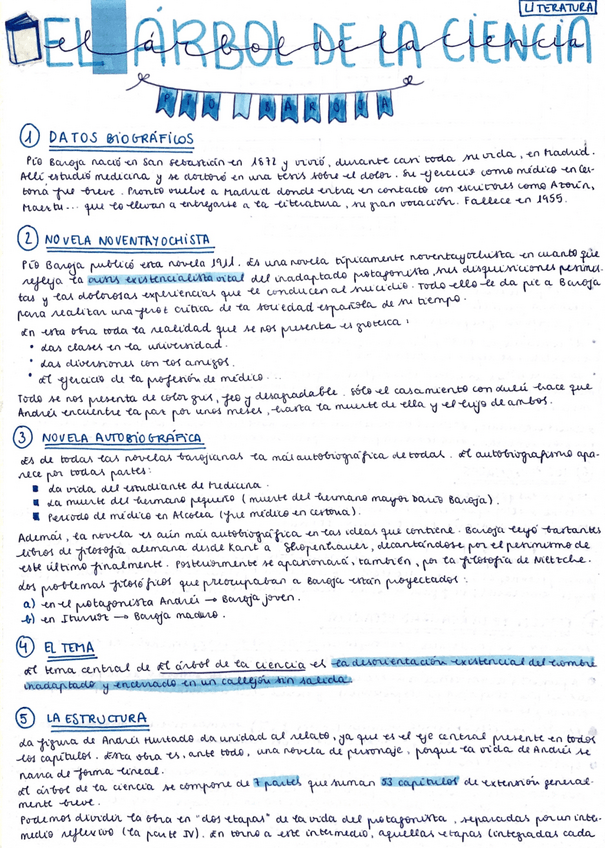 LITERATURA
EL ÁRBOL DE LA CIENCIA
el árbol de la ciencia
PÍO BAROJA
1 DATOS BIOGRÁFICOS
Pío Baroja nació en San Sebastián en 1872 y vivió, durante casi toda su vida, en Madrid.
Allí estudió medicina y se doctoró en una tesis sobre el dolor. Su ejercicio como médico en Ces-
tona fue breve. Pronto vuelve a Madrid donde entra en contacto con escritores como Azorín,
Maeztu... que lo llevan a entregarse a la literatura, su gran vocación. Fallece en 1955.
2 NOVELA NOVENTAYOCHISTA
Pío Baroja publicó esta novela 1911. Es una novela típicamente noventayochista en cuanto que
refleja la crisis existencialista vital del inadaptado protagonista, sus disquisiciones pesimis-
tas y las dolorosas experiencias que le conducen al suicidio. Todo ello le da pie a Baroja
para realizar una feroz crítica de la sociedad española de su tiempo.
En esta obra toda la realidad que se nos presenta es grotesca:
• Las clases en la universidad.
• Las diversiones con los amigos.
• El ejercicio de la profesión de médico...
Todo se nos presenta de color gris, feo y desagradable. Sólo el casamiento con Lulú hace que
Andrés encuentre la paz por unos meses, hasta la muerte de ella y el hijo de ambos.
3 NOVELA AUTOBIOGRÁFICA
Es de todas las novelas barojianas la más autobiográfica de todas. El autobiografismo apa-
rece por todas partes:
▪ La vida del estudiante de Medicina.
▪ La muerte del hermano pequeño (muerte del hermano mayor Darío Baroja).
▪ Periodo de médico en Alcolea (fue médico en Cestona).
Además, la novela es aún más autobiográfica en las ideas que contiene. Baroja leyó bastantes
libros de filosofía alemana desde Kant a Shopenhauer, decantándose por el pesimismo de
este último finalmente. Posteriormente se apasionará, también, por la filosofía de Nietzche.
Los problemas filosóficos que preocupaban a Baroja están proyectados:
a) en el protagonista Andrés → Baroja joven.
b) en Iturrioz → Baroja maduro.
4 EL TEMA
El tema central de El árbol de la ciencia es la desorientación existencial del hombre
inadaptado y encerrado en un callejón sin salida.
5 LA ESTRUCTURA
La figura de Andrés Hurtado da unidad al relato, ya que es el eje central presente en todos
los capítulos. Esta obra es, ante todo, una novela de personaje, porque la vida de Andrés se
narra de forma lineal.
El árbol de la ciencia se compone de 7 partes que suman 53 capítulos de extensión general-
mente breve.
Podemos dividir la obra en "dos etapas" de la vida del protagonista, separadas por un inter-
medio reflexivo (la parte IV). En torno a este intermedio, aquellas etapas (integradas cada